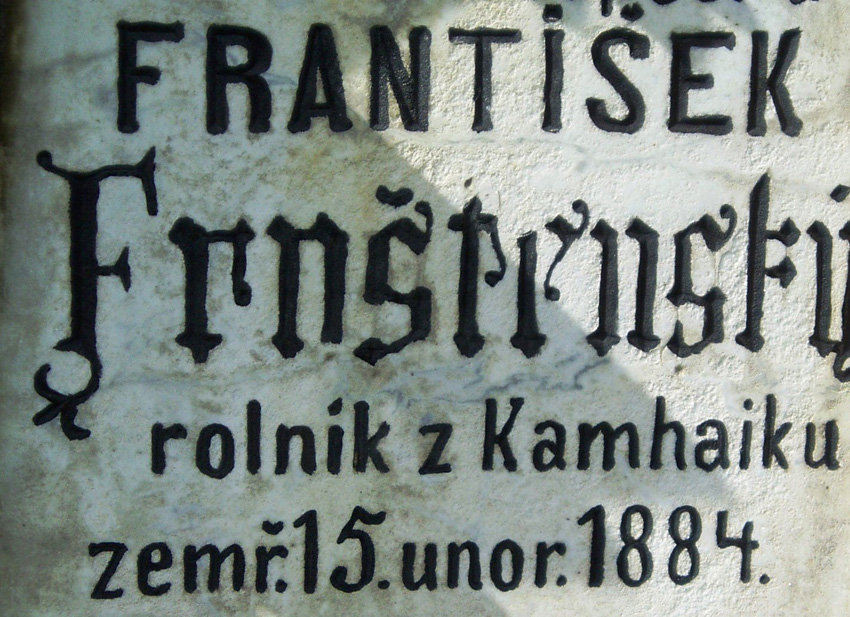 FRANTIŠEK
Frnštenský
rolník z Kamhaiku
zemř. 15. unor. 1884.